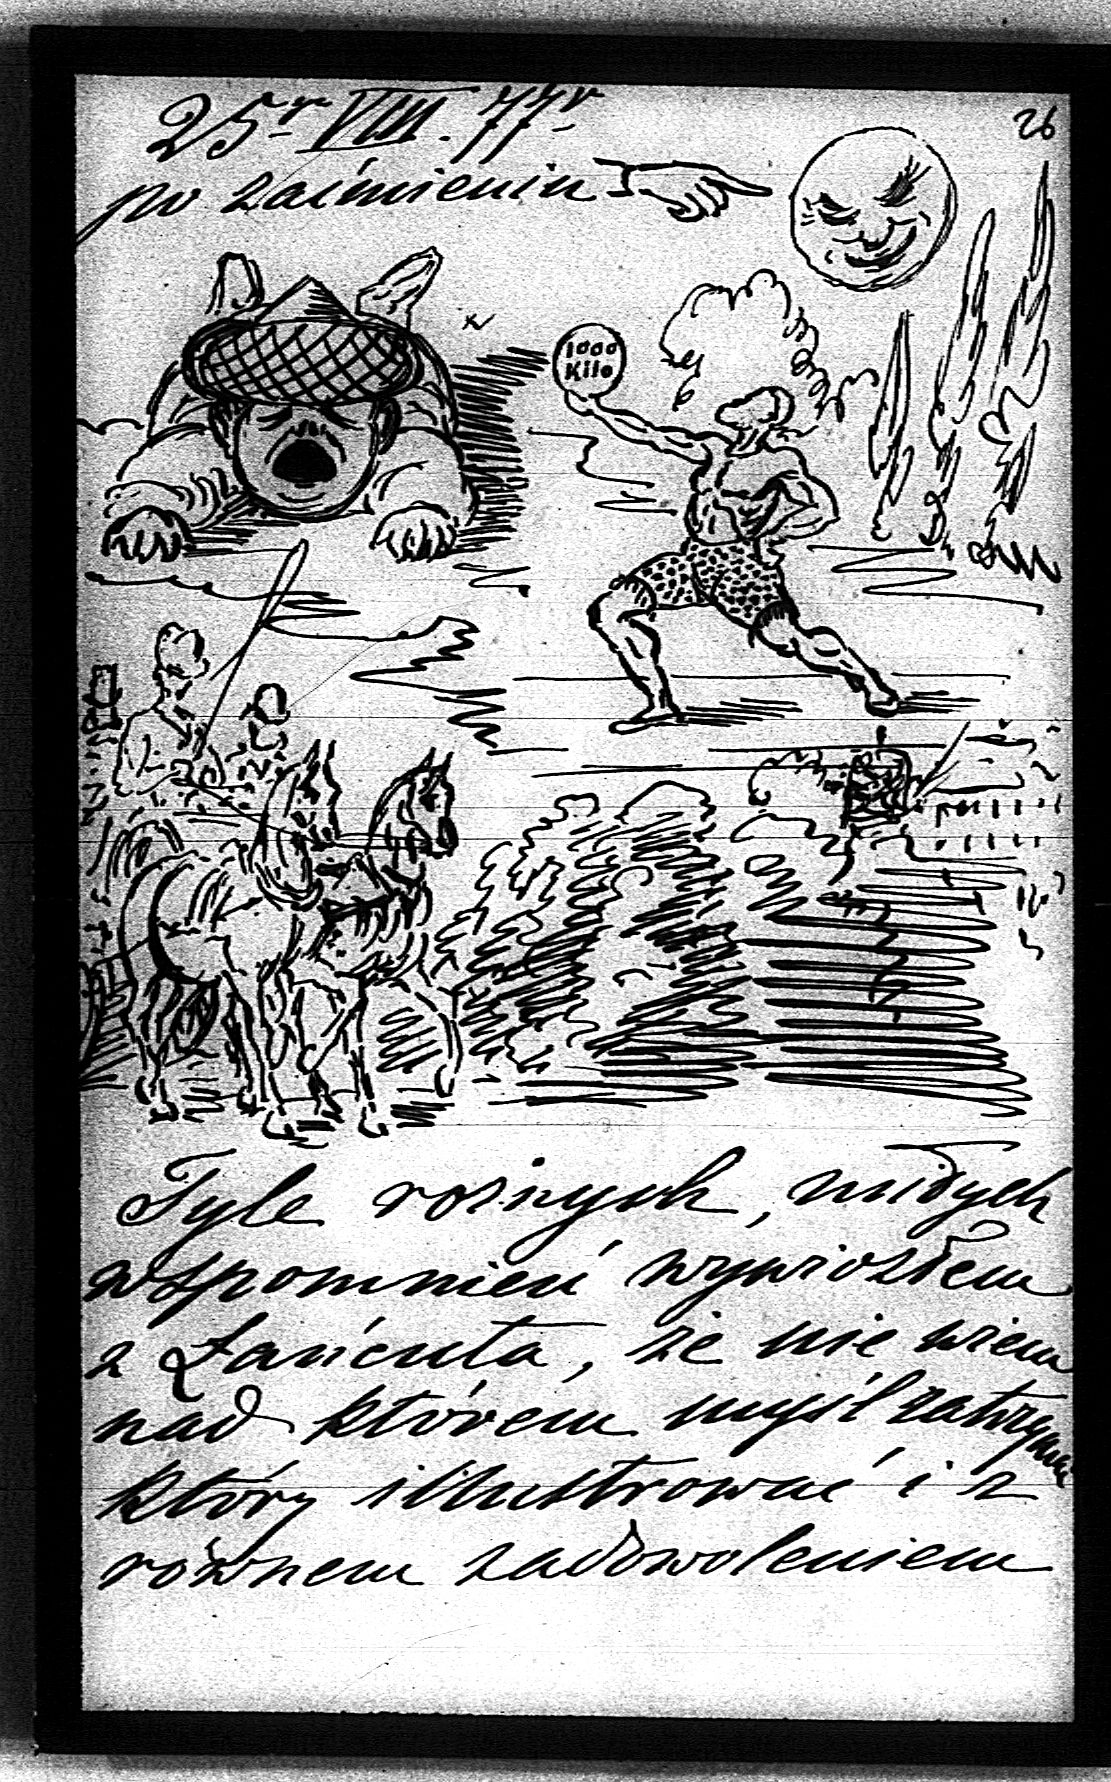 25go VIII. 77r
26
po zaćmieniu
1000
Kilo
Tyle rożnych, miłych
wspomnień wywiozłem
z Łańcuta, że nie wiem
nad którem myśl zatrzymać
który illustrować i z
rożnem zadowoleniem